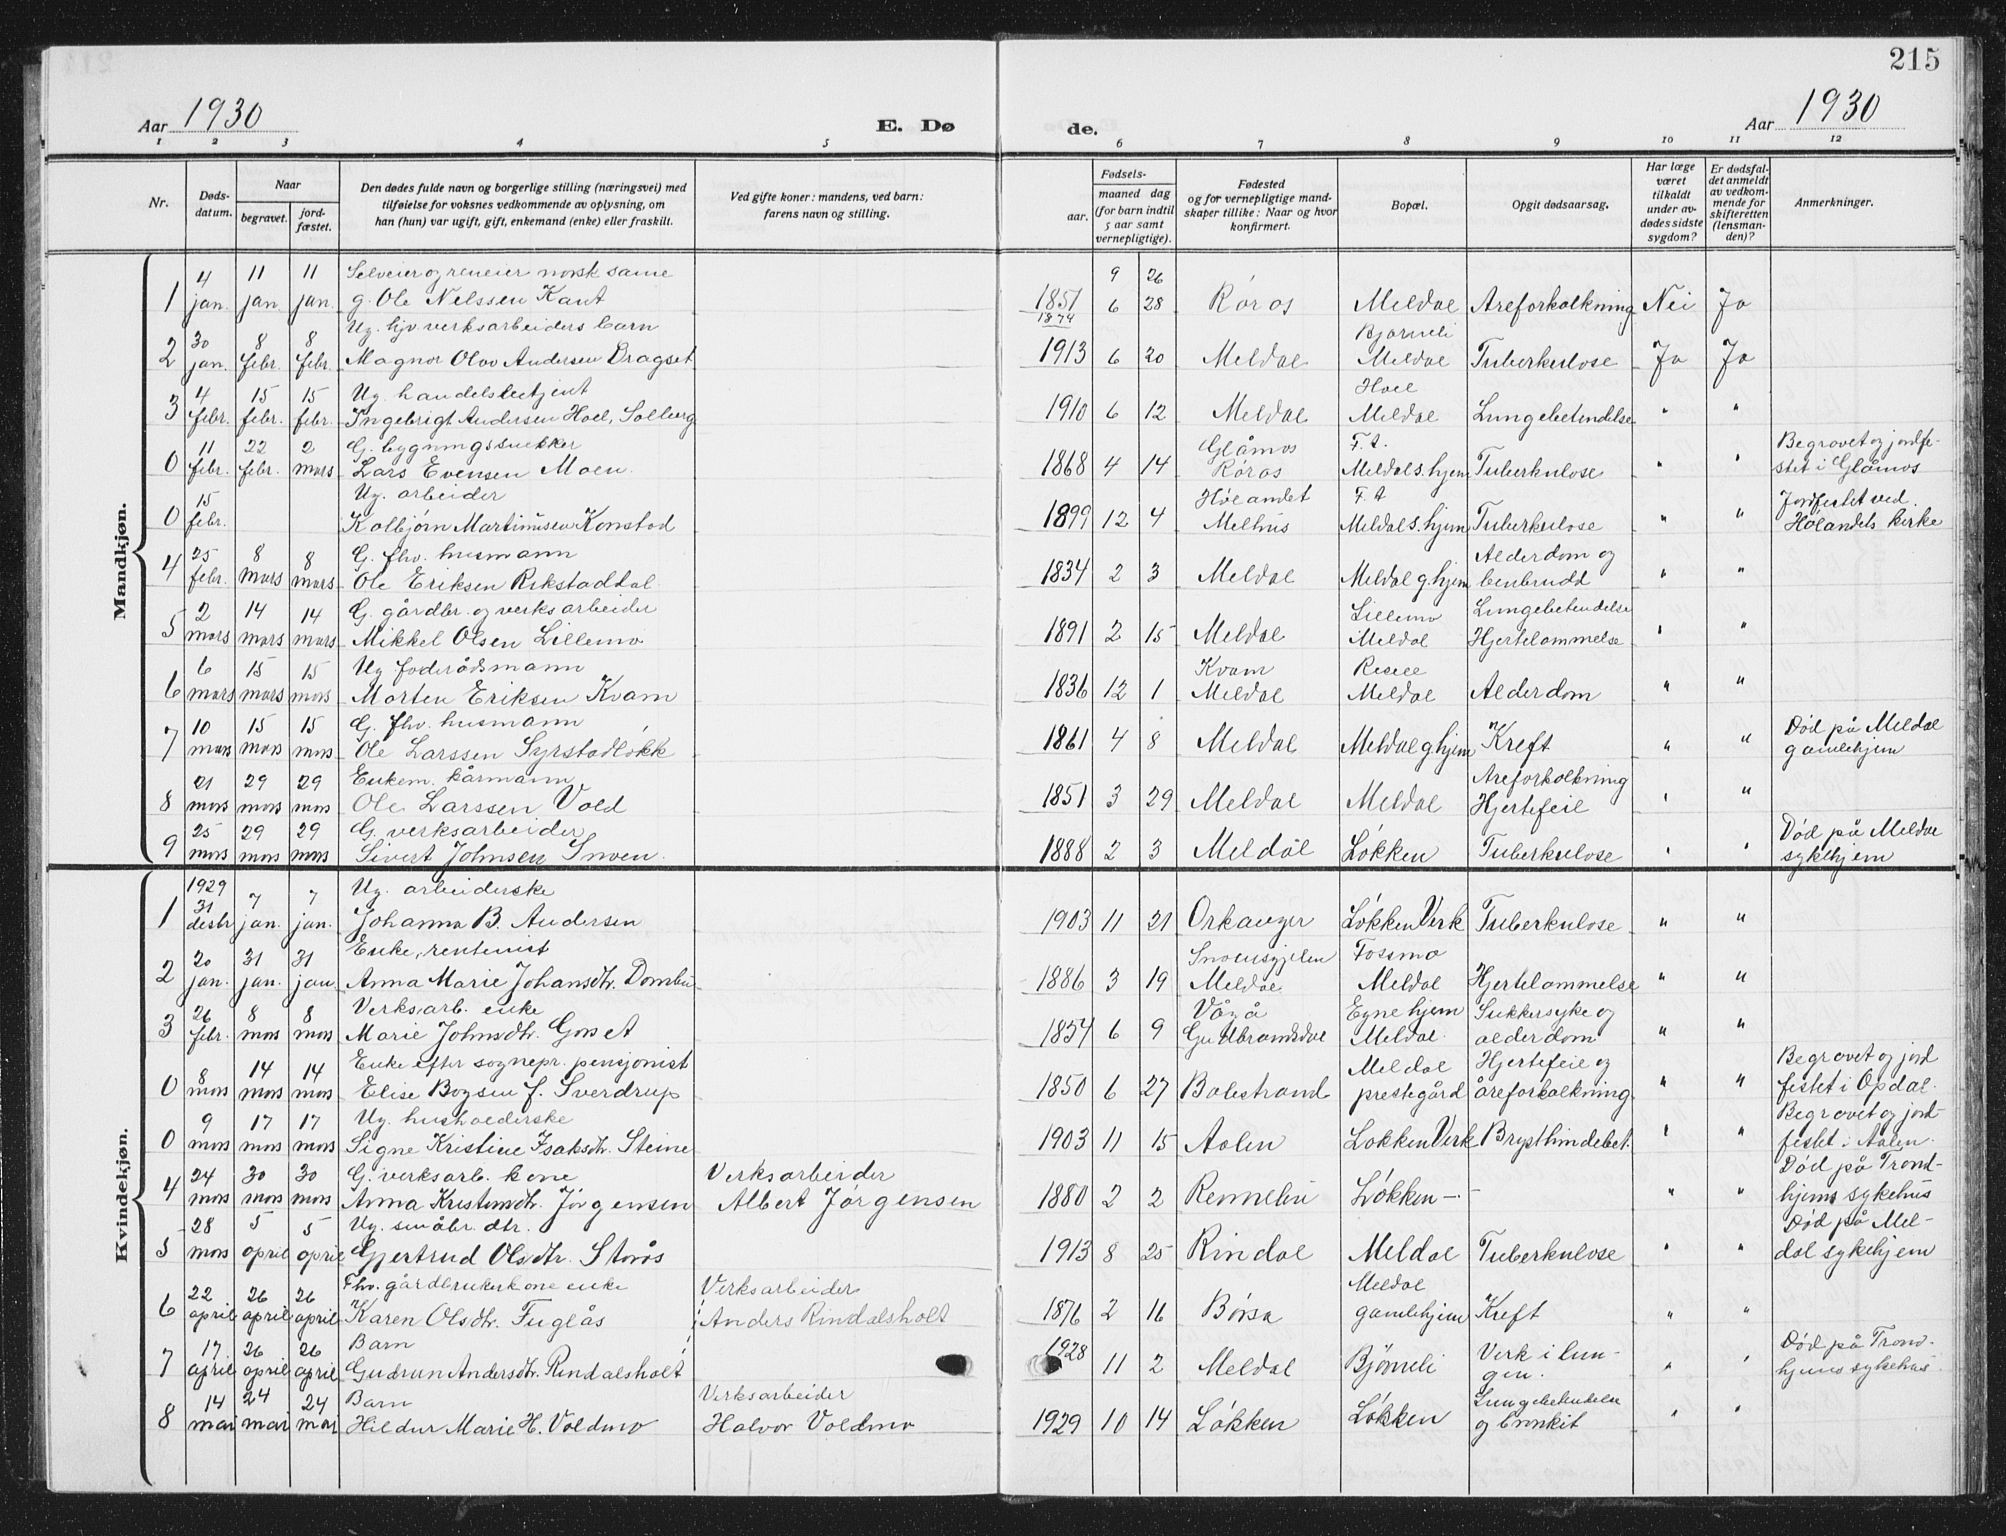 215
Aar 1930
E. Dø
de.
Aar 1930
1 2 3 4 5 6 7 8 9 10 11 12
Nr.
Døds-
datum.
Naar
begravet.
jord-
fæstet.
Den dødes fulde navn og borgerlige stilling (næringsvei) med
tilføielse for voksnes vedkommende av oplysning, om
han (hun) var ugift, gift, enkemand (enke) eller fraskilt.
Ved gifte koner: mandens, ved barn:
farens navn og stilling.
Fødsels-
aar.
maaned dag
(for barn indtil
5 aar samt
vernepligtige).
Fødested
og for vernepligtige mand-
skaper tillike: Naar og hvor
konfirmert.
Bopæl.
Opgit dødsaarsag.
Har læge
været
tilkaldt
under av-
dødes sidste
sygdom?
Er dødsfal-
det anmeldt
av vedkom-
mende for
skifteretten
(lensman-
den)?
Anmerkninger.
Mandkjøn.
4 11 11 Selveier og reneier norsk same 9 26
1 jan. jan jan. g. Ole Nelssen Kant 1851 6 28 Røros Meldal Areforkalkning Nei Ja
1874
30 8 8 Ug. hjv verksarbeiders barn Bjørneli
2 jan. febr. febr. Magnor Olav Andersen Dragset 1913 6 20 Meldal Meldal Tuberkulose Ja Ja
4 15 15 Ug. handelsbetjent Hoel
3 febr. febr. febr. Ingebrigt Andersen Hoel, Solberg 1910 6 12 Meldal Meldal Lungebetendelse " "
11 22 2 G. bygningssnekker Glåmos F. t. Begravet og jordfe-
0 febr. febr. mars Lars Evensen Moen. 1868 4 14 Røros Meldal s.hjem Tuberkulose " " stet i Glåmos
15 Ug. arbeider Hølandet F. t Jordfestet ved
0 febr. Kolbjørn Martinusen Konstad 1899 12 4 Melhus Meldal s. hjem Tuberkulose " " Hølandets kirke
25 8 8 G. fhv. husmann Alderdom og
4 febr. mars mars Ole Eriksen Rikstaddal 1834 2 3 Meldal Meldal g. hjem benbrudd " "
2 14 14 G. gårdbr. og verksarbeider Lillemo Lungebetendelse
5 mars mars mars Mikkel Olsen Lillemo 1891 2 15 Meldal Meldal Hjertelammelse " "
6 15 15 Ug foderådsmann Kvam Resell
6 mars mars mars Morten Eriksen Kvam 1836 12 1 Meldal Meldal Alderdom " "
10 15 15 G. fhv. husmann Død på Meldal
7 mars mars mars Ole Larssen Syrstadløkk 1861 4 8 Meldal Meldal g hjem Kreft " " gamlehjem
21 29 29 Enkem. kårmann Areforkalkning
8 mars mars mars Ole Larssen Vold 1851 3 29 Meldal Meldal Hjertefeil " "
25 29 29 G. verksarbeider Død på Meldal
9 mars mars mars Sivert Johnsen Snoen. 1888 2 3 Meldal Løkken Tuberkulose " " sykehjem
Kvindekjøn.
1929
31 7 7 Ug. arbeiderske
1 desbr jan. jan. Johanna B. Andersen 1903 11 21 Orkanger Løkken Verk Tuberkulose " "
20 31 31 Enke, rentenist Fossmo
2 jan. jan. jan Anna Marie Johansdtr. Dombu 1886 3 19 Meldal Meldal Hjertelammelse " "
26 8 8 Verksarb. enke Vågå Egne hjem Sukkersyke og
3 febr. mars mars Marie Johnsdtr. Gorset 1854 6 9 Gudbrandsdal Meldal. alderdom " "
8 14 14 Enke efter sognepr. pensjonist Meldal Hjertefeil og Begravet og jord
0 mars mars mars Elise Bogsen f. Sverdrup 1850 6 27 Balestrand prestegård åreforkalkning " " festet i Opdal.
9 17 17 Ug. husholderske Begravet og jord-
0 mars mars mars Signe Kristine Isaksdtr. Steine 1903 11 15 Aalen Løkken Verk Brysthindebet. " " festet i Aalen.
24 30 30 G. verksarb. kone Verksarbeider Død på Trond-
4 mars mars mars Anna Kristensdtr. Jørgensen Albert Jørgensen 1880 2 2 Rennebu Løkken - - " " hjems sykehus
28 5 5 Ug. småbr. dtr. Død på Mel-
5 mars april april Gjertrud Olsdtr. Storås 1913 8 25 Rindal Meldal Tuberkulose " " dal sykehjem
22 26 26 Fhv. gårdbrukerkone enke Verksarbeider Meldal
6 april april april Karen Olsdtr. Fuglås Anders Rindalsholt 1876 2 16 Børsa gamlehjem Kreft " "
17. 26 26 Barn Verk i lun- Død på Trond-
7 april april april Gudrun Andersdtr. Rindalsholt 1928 11 2 Meldal Bjørneli gen. " " hjems sykehus
14 24 24 Barn Verksarbeider Lungebetendelse
8 mai mai mai Hildur Marie H. Voldmo Halvor Voldmo 1929 10 14 Løkken Løkken og bronkit " "